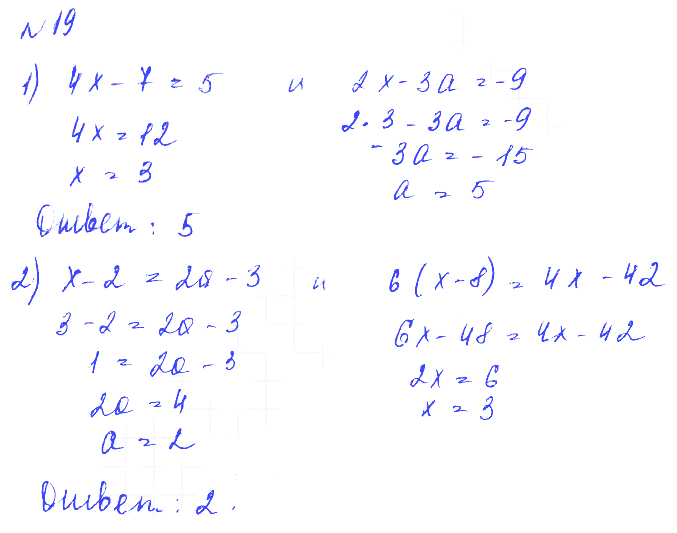 №19
1) 4x - 7 = 5 и 2x - 3a = -9
4x = 12 2·3 - 3a = -9
x = 3 -3a = -15
a = 5
Ответ: 5
2) x - 2 = 2a - 3 и 6(x - 8) = 4x - 42
3 - 2 = 2a - 3 6x - 48 = 4x - 42
1 = 2a - 3 2x = 6
2a = 4 x = 3
a = 2
Ответ: 2.